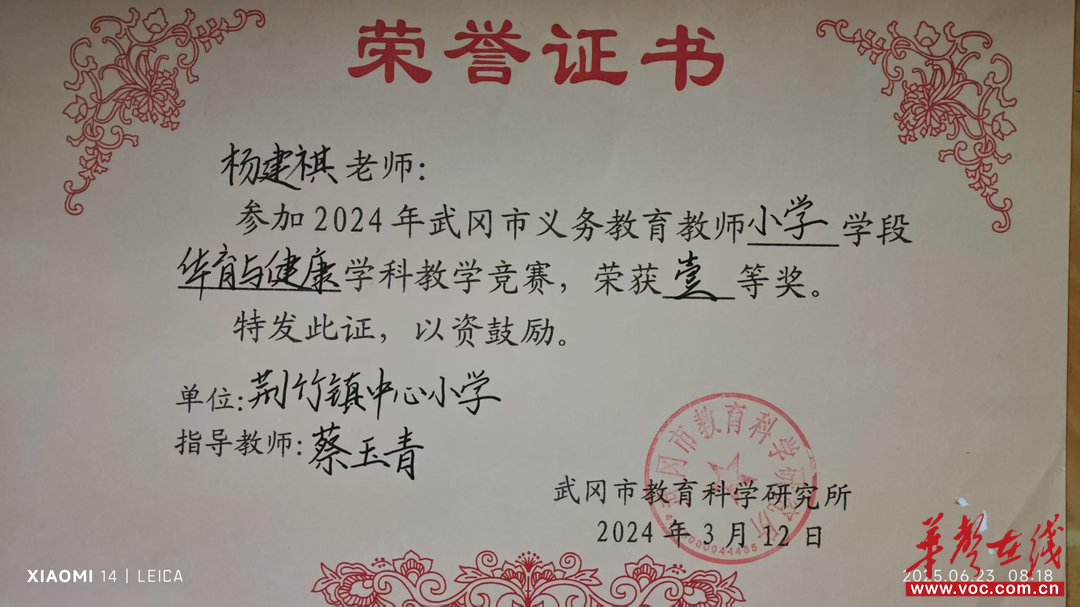 荣誉证书
杨建祺老师:
参加2024年武冈市义务教育教师小学学段
体育与健康学科教学竞赛，荣获壹等奖。
特发此证，以资鼓励。
单位:荆竹镇中心小学
指导教师:蔡玉青
武冈市教育科学研究所
武冈市教育科学研究所
2024年3月12日
XIAOMI 14 | LEICA
华声在线
2025.06.23 08:18
www.voc.com.cn